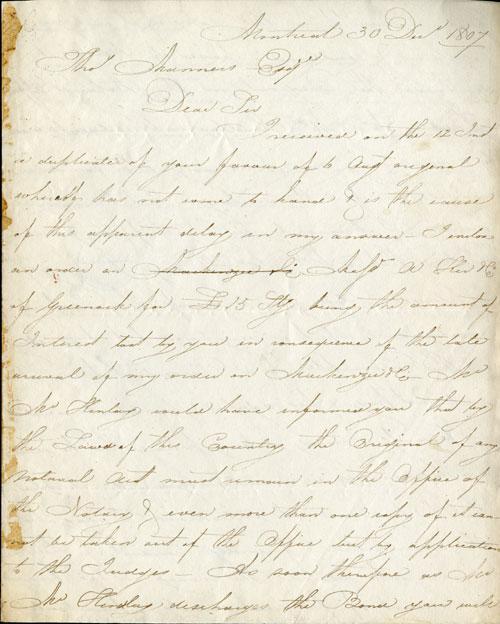 Montreal 30 Decr 1807
Thos Manners Esqr
Dear Sir
I received on the 12 Inst
a duplicate of your favour of 6 Augt original
whereof has not come to hand & is the cause
of this apparent delay in my answer – I enclose
an order on Messrs A &Co
of Greenock for £15 Stg being the amount of
Interest lost by you in consequence of the late
arrival of my order on Mackenzie &Co – Mr
Mc Kinlay could have informed you that by
the Laws of this Country the Original of any
Notarial Act must remain in the Office of
the Notary & even more than one copy of it can
not be taken out of the Office but by application
to the Judges – As soon therefore as Mr
Mc Kinlay discharges the Bond you will